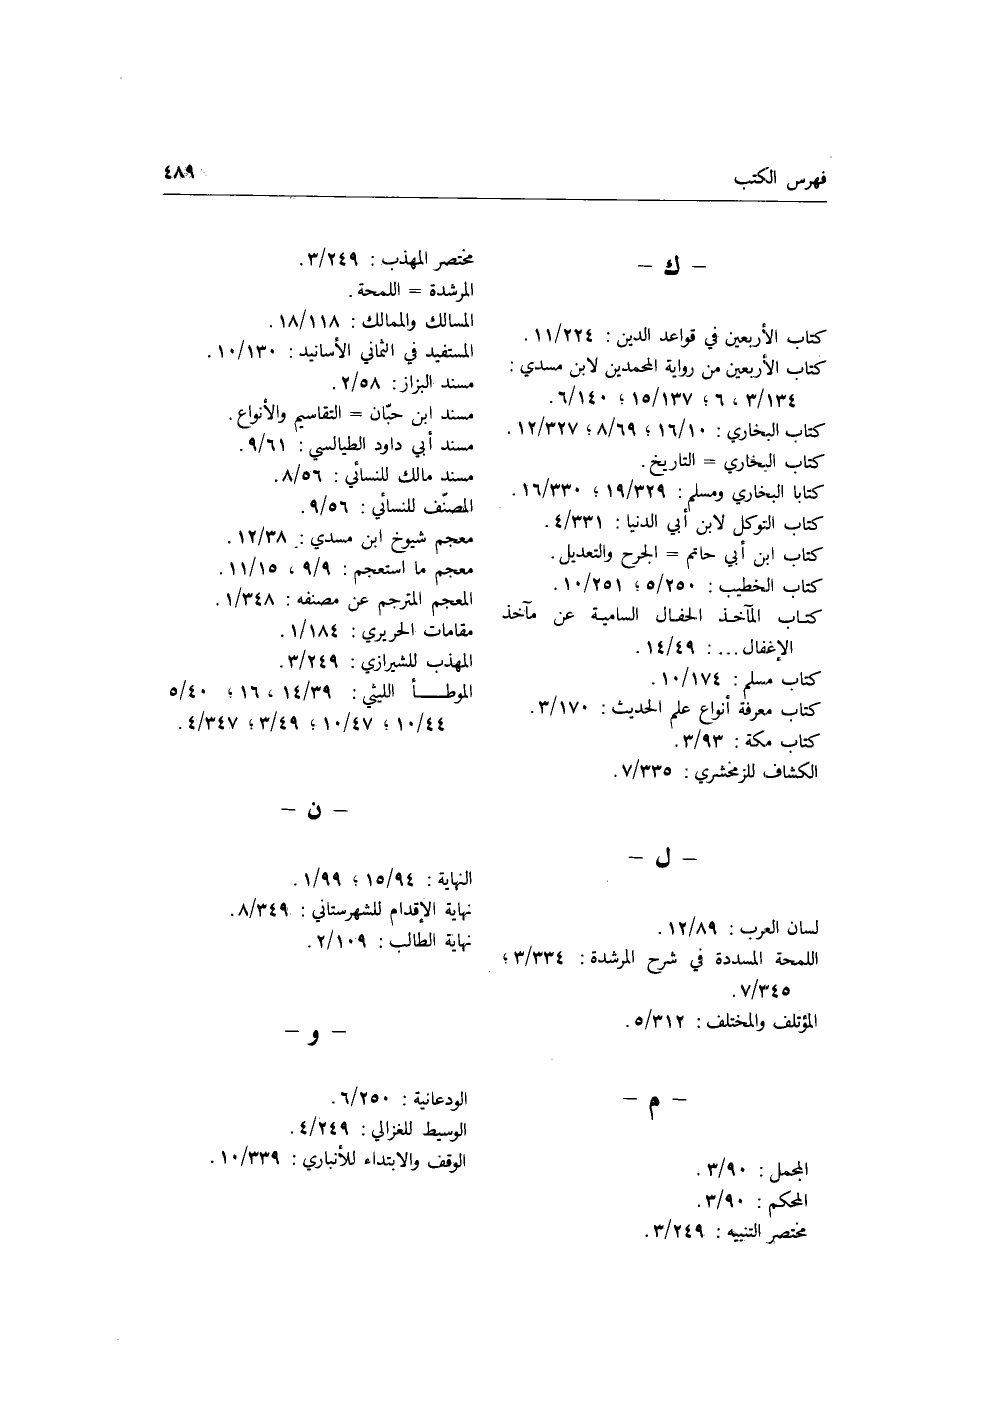 فهرس الكتب
٤٨٩
- ك -
كتاب الأربعين في قواعد الدين : ١١/٢٢٤ .
كتاب الأربعين من رواية المحمدين لابن مسدي :
٣/١٣٤ ، ٦ ؛ ١٥/١٣٧ ؛ ٦/١٤٠.
كتاب البخاري : ١٦/١٠ ؛ ٨/٦٩ ؛ ١٢/٣٢٧ .
كتاب البخاري = التاريخ.
كتابا البخاري ومسلم : ١٩/٣٢٩ ؛ ١٦/٣٣٠ .
كتاب التوكل لابن أبي الدنيا : ٤/٣٣١.
كتاب ابن أبي حاتم = الجرح والتعديل.
كتاب الخطيب : ٥/٢٥٠ ؛ ١٠/٢٥١ .
كتاب المآخذ الحفال السامية عن مآخذ
الإغفال... : ١٤/٤٩ .
كتاب مسلم : ١٠/١٧٤ .
كتاب معرفة أنواع علم الحديث : ٣/١٧٠ .
كتاب مكة : ٣/٩٣.
الكشاف للزمخشري : ٧/٣٣٥ .
- ل -
لسان العرب : ١٢/٨٩ .
اللمحة المسددة في شرح المرشدة : ٣/٣٣٤ ؛
٧/٣٤٥.
المؤتلف والمختلف : ٥/٣١٢ .
- م -
المجمل : ٣/٩٠ .
المحكم : ٣/٩٠ .
مختصر التنبيه : ٣/٢٤٩ .
مختصر المهذب : ٣/٢٤٩.
المرشدة = اللمحة .
المسالك والممالك : ١٨/١١٨ .
المستفيد في الثماني الأسانيد : ١٠/١٣٠ .
مسند البزاز : ٢/٥٨ .
مسند ابن حبّان = التقاسيم والأنواع.
مسند أبي داود الطيالسي : ٩/٦١ .
مسند مالك للنسائي : ٨/٥٦ .
المصنّف للنسائي : ٩/٥٦ .
معجم شيوخ ابن مسدي : ١٢/٣٨ .
معجم ما استعجم : ٩/٩ ، ١١/١٥ .
المعجم المترجم عن مصنفه : ١/٣٤٨ .
مقامات الحريري : ١/١٨٤ .
المهذب للشيرازي : ٣/٢٤٩.
الموطـــأ الليثي : ١٤/٣٩ ، ١٦ ؛ ٥/٤٠
١٠/٤٤ ؛ ١٠/٤٧ ؛ ٣/٤٩ ؛ ٤/٣٤٧ .
- ن -
النهاية : ١٥/٩٤ ؛ ١/٩٩ .
نهاية الإقدام للشهرستاني : ٨/٣٤٩.
نهاية الطالب : ٢/١٠٩ .
- و -
الودعانية : ٦/٢٥٠ .
الوسيط للغزالي : ٤/٢٤٩ .
الوقف والابتداء للأنباري : ١٠/٣٣٩ .